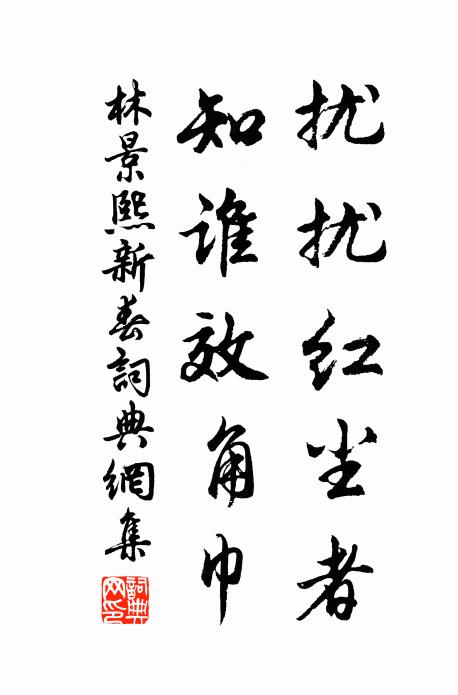 扰扰红尘者
知谁效角巾
林景熙新春詞典網集
詞典网印